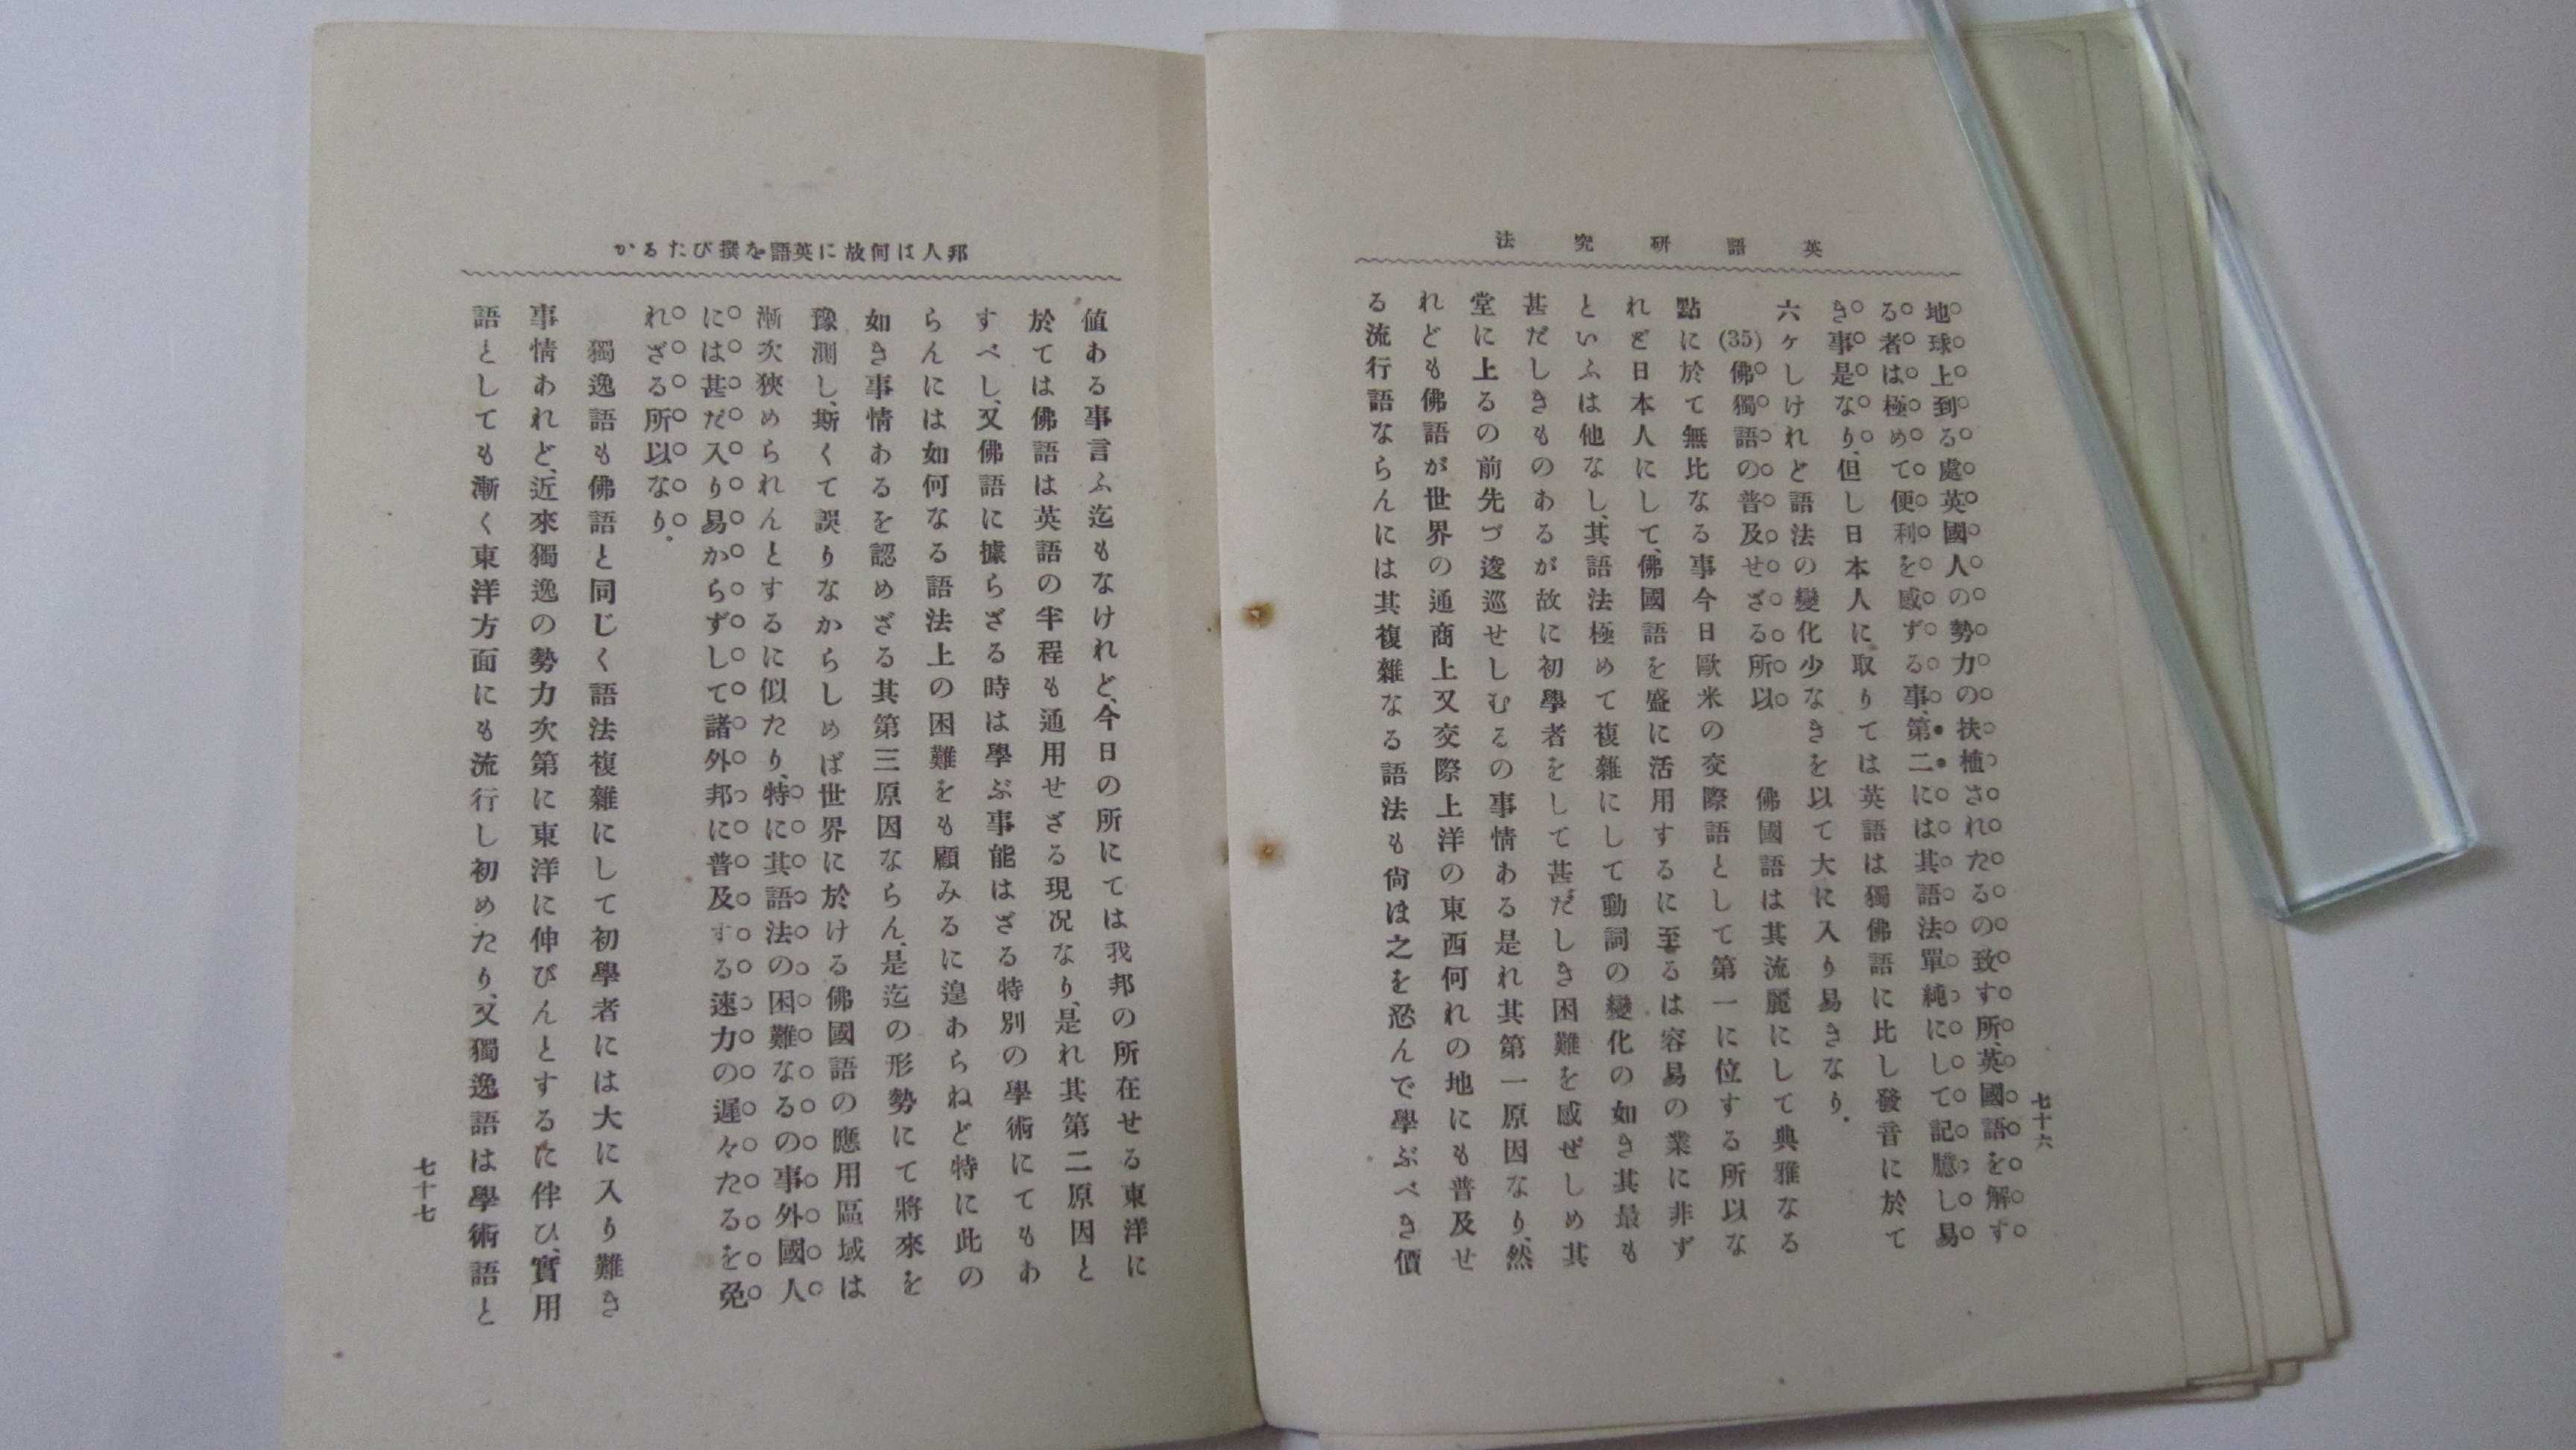 英語研究法
七十六
地球上到る處英國人の勢力の扶植されたるの致す所、英國語を解す
る者は極めて便利を感ずる事、第二には其語法單純にして記臆し易
き事是なり、但し日本人に取りては英語は獨佛語に比し發音に於て
六ケしけれど語法の變化少なきを以て大に入り易きなり.
(35) 佛獨語の普及せざる所以 佛國語は其流麗にして典雅なる
點に於て無比なる事今日歐米の交際語として第一に位する所以な
れど日本人にして、佛國語を盛に活用するに至るは容易の業に非ず
といふは他なし、其語法極めて複雜にして動詞の變化の如き其最も
甚だしきものあるが故に初學者をして甚だしき困難を感ぜしめ其
堂に上るの前先づ逡巡せしむるの事情ある是れ其第一原因なり、然
れども佛語が世界の通商上又交際上洋の東西何れの地にも普及せ
る流行語ならんには其複雜なる語法も尙は之を忍んで學ぶべき價
邦人は何故に英語を撰びたるか
値ある事言ふ迄もなけれど、今日の所にては我邦の所在せる東洋に
於ては佛語は英語の半程も通用せざる現況なり、是れ其第二原因と
すべし、又佛語に據らざる時は學ぶ事能はざる特別の學術にてもあ
らんには如何なる語法上の困難をも顧みるに遑あらねど特に此の
如き事情あるを認めざる其第三原因ならん、是迄の形勢にて將來を
豫測し、斯くて誤りなからしめば世界に於ける佛國語の應用區域は
漸次狹められんとするに似たり、特に其語法の困難なるの事外國人
には甚だ入り易からずして諸外邦に普及する速力の遲々たるを免
れざる所以なり.
獨逸語も佛語と同じく語法複雜にして初學者には大に入り難き
事情あれど、近來獨逸の勢力次第に東洋に伸びんとするに伴ひ、實用
語としても漸く東洋方面にも流行し初めたり、又獨逸語は學術語と
七十七